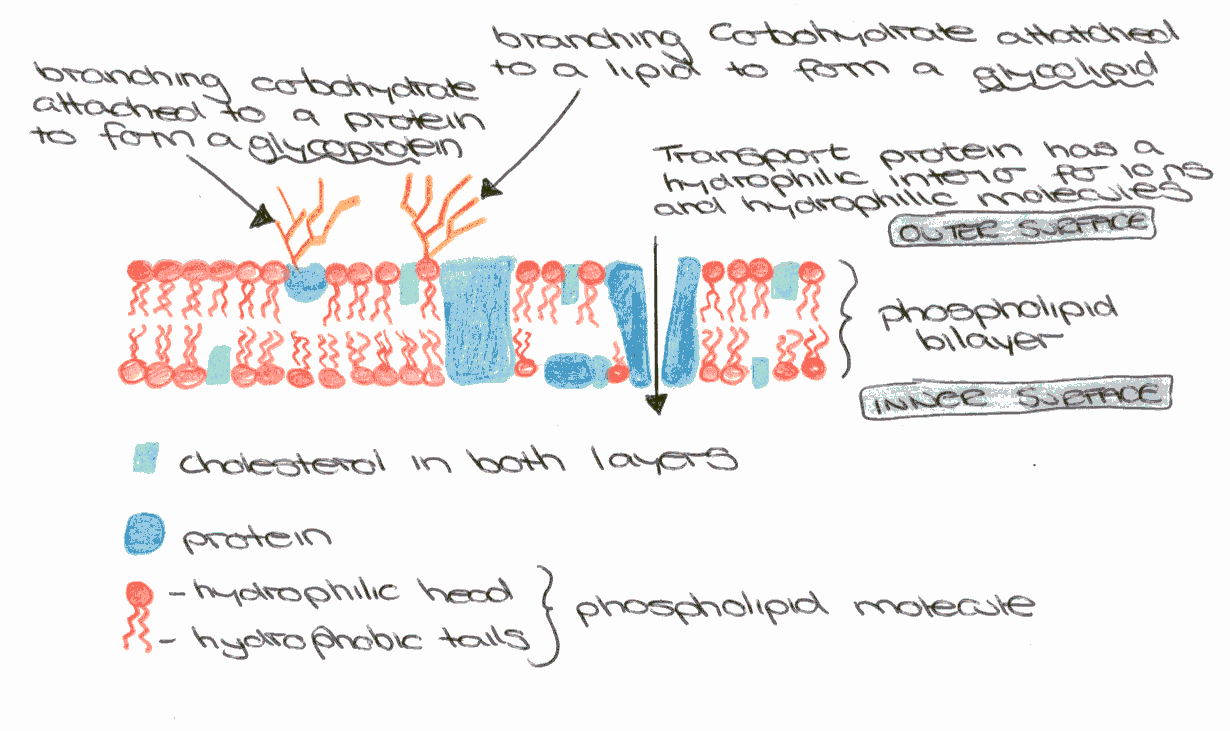 branching carbohydrate
attached to a protein
to form a glycoprotein
branching carbohydrate attatched
to a lipid to form a glycolipid
Transport protein has a
hydrophilic interior for ions
and hydrophilic molecules
OUTER SURFACE
phospholipid
bilayer
INNER SURFACE
cholesterol in both layers
protein
- hydrophilic head
- hydrophobic tails
phospholipid molecule